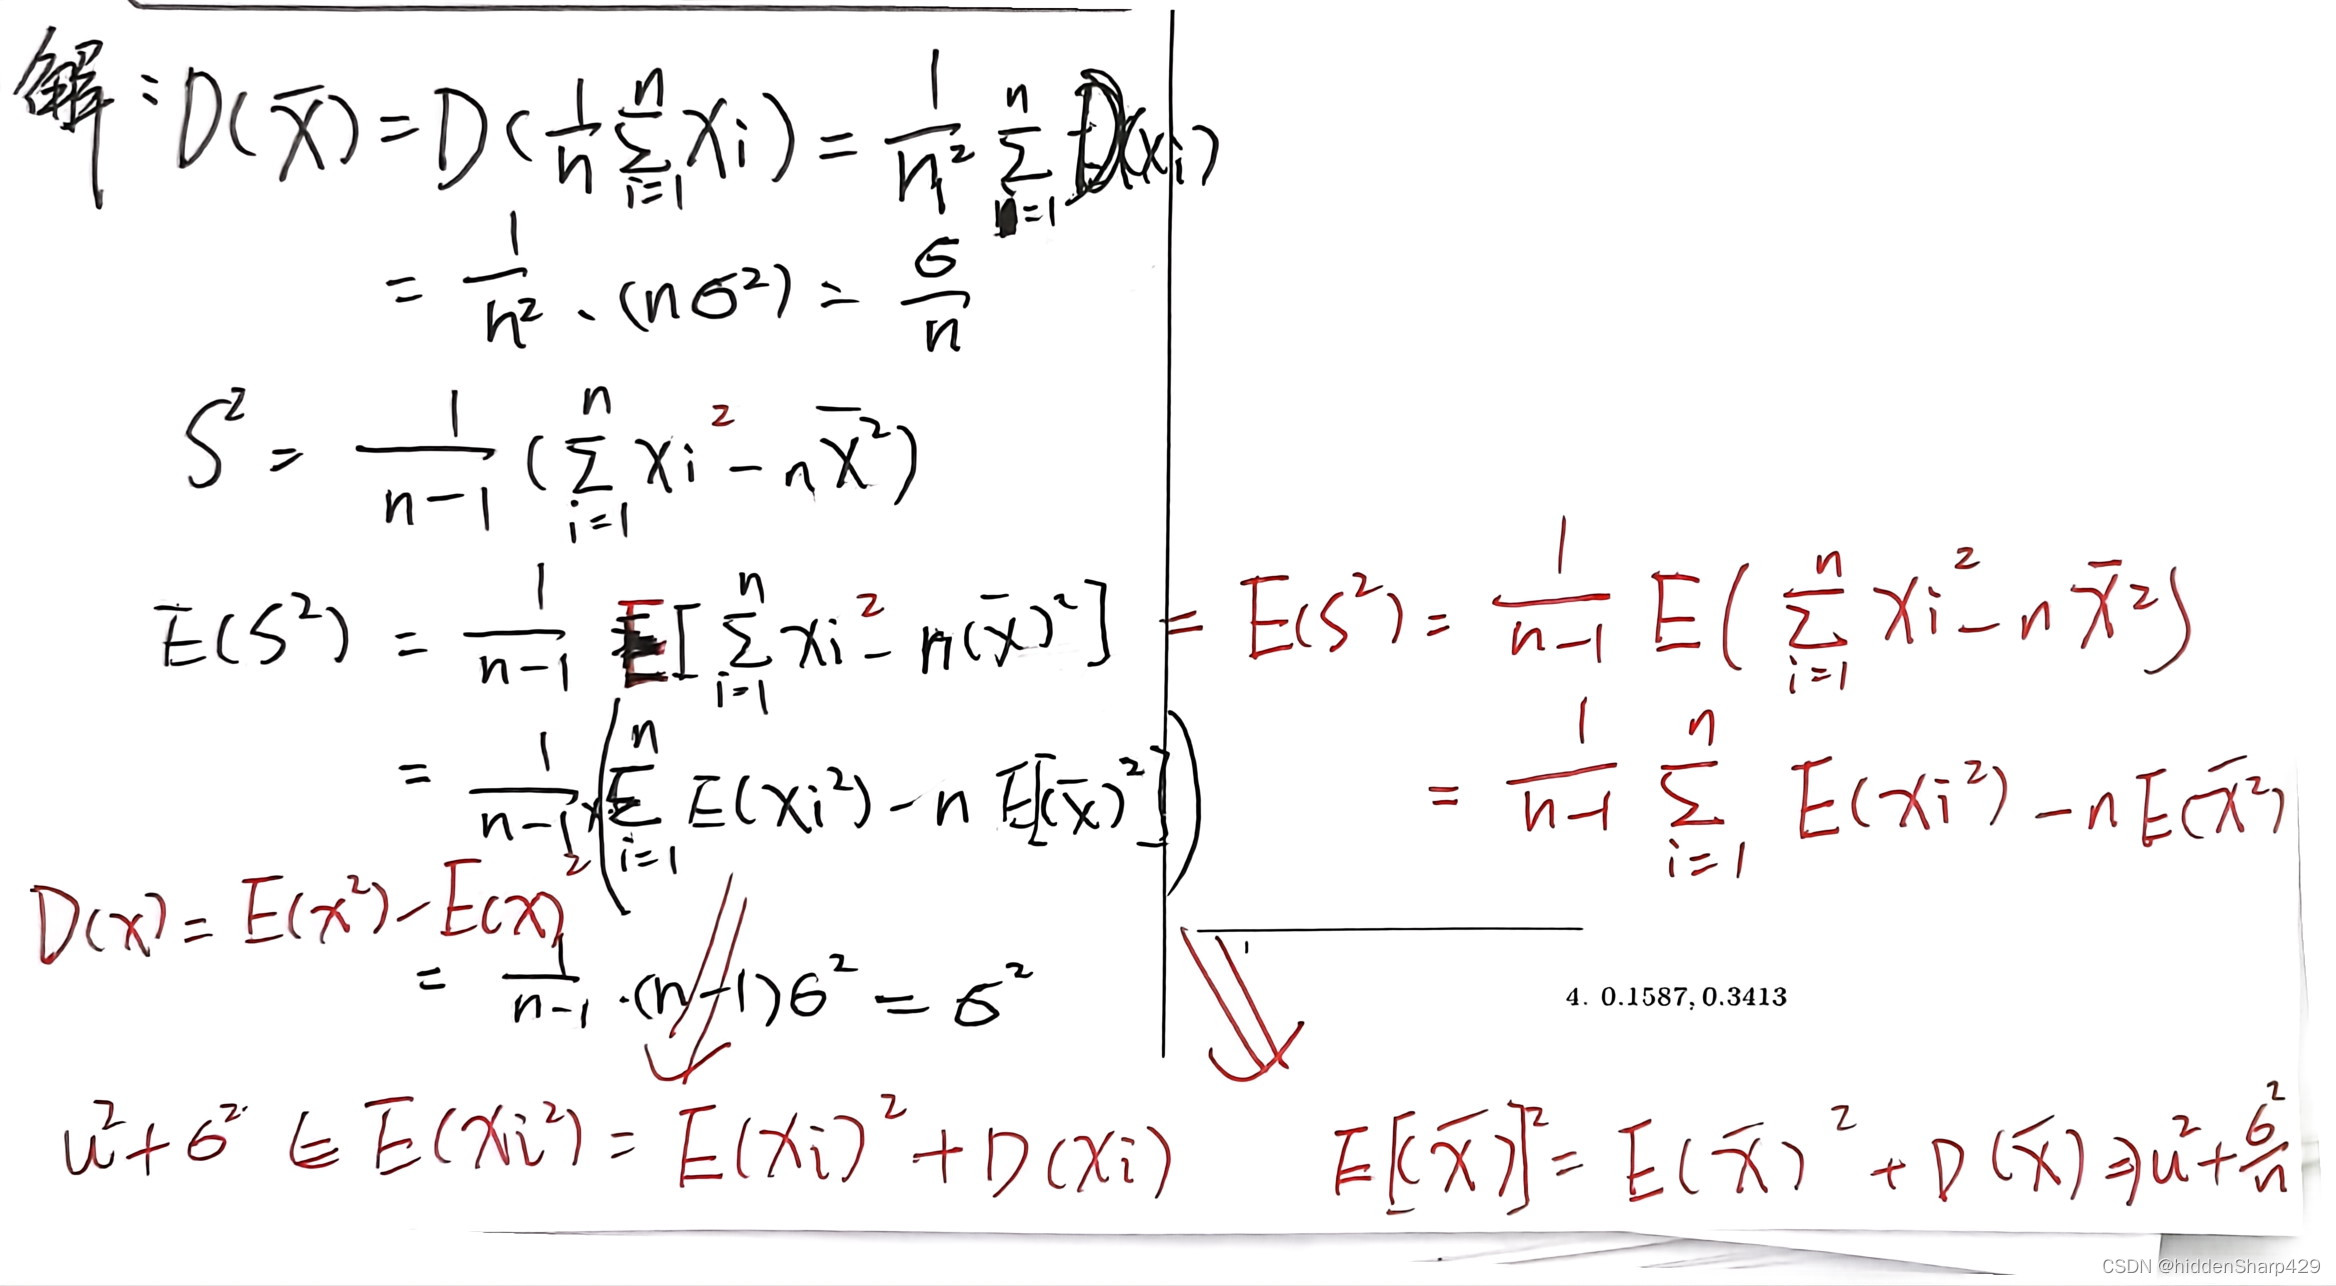 解：D(X̄) = D(1/n ∑_{i=1}^{n} Xi) = 1/n² ∑_{n=1}^{n} D(Xi)
= 1/n² · (nσ²) = σ/n
S² = 1/(n-1) (∑_{i=1}^{n} Xi² - nX̄²)
E(S²) = 1/(n-1) E[∑_{i=1}^{n} Xi² - n(X̄)²] = E(S²) = 1/(n-1) E(∑_{i=1}^{n} Xi² - nX̄²)
= 1/(n-1) × (∑_{i=1}^{n} E(Xi²) - nE[(X̄)²])
= 1/(n-1) ∑_{i=1}^{n} E(Xi²) - nE(X̄²)
D(X) = E(X²) - E(X)²
= 1/(n-1) · (n-1)σ² = σ²
4. 0.1587, 0.3413
u² + σ² ⇐ E(Xi²) = E(Xi)² + D(Xi)
E[(X̄)]² = E(X̄)² + D(X̄) ⇒ u² + σ²/n
CSDN @hiddenSharp429